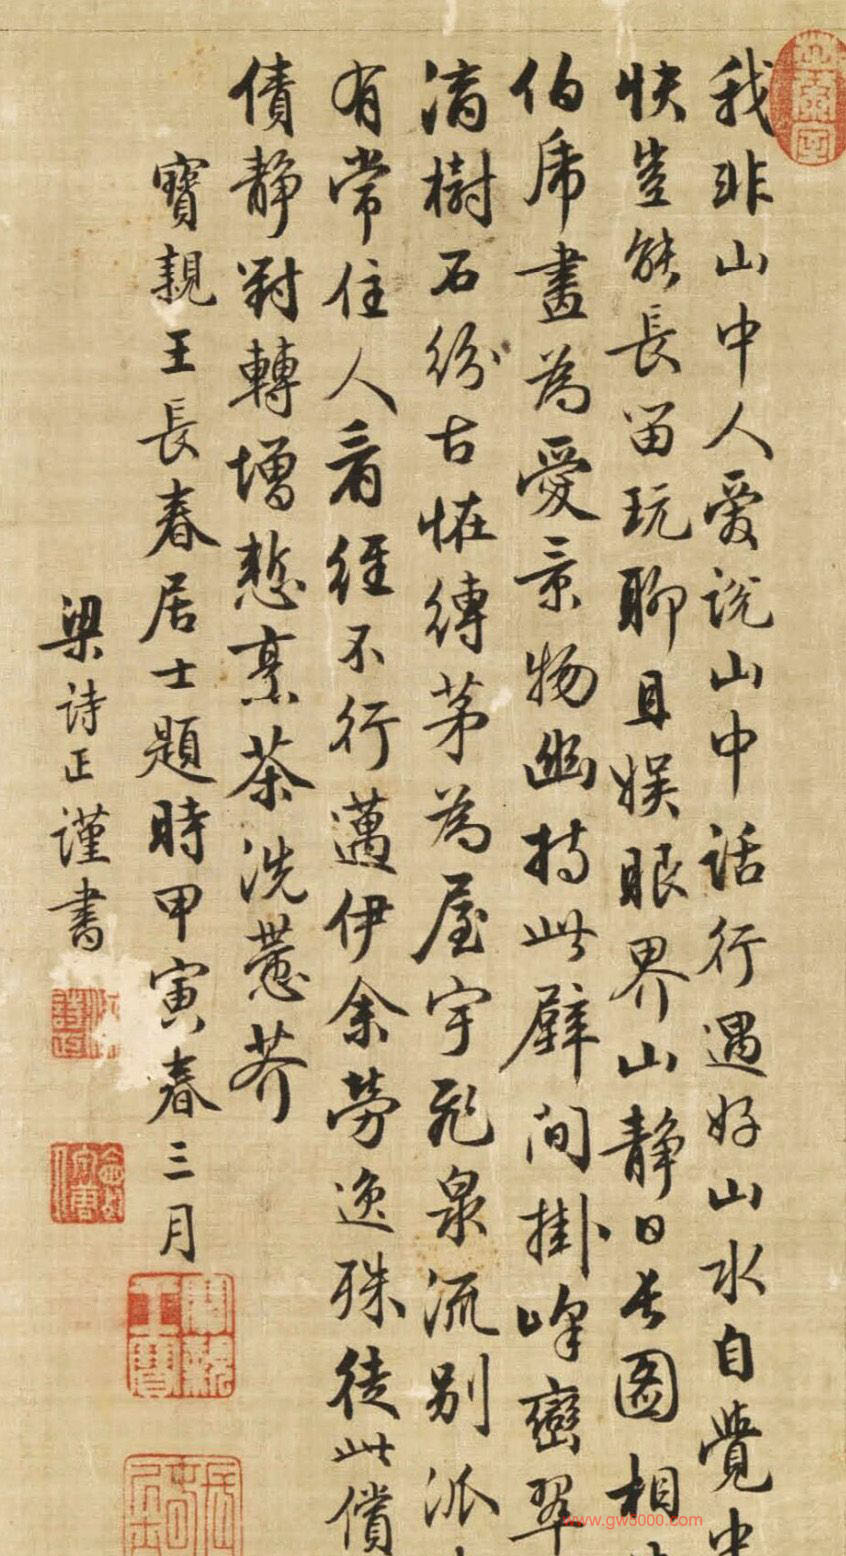 我非山中人爱説山中話行遇好山水自覺中
快豈能長留玩聊且娱眼界山静日長圖相
伯虎畫為愛景物幽持此壁間掛峰巒翠
滴樹石紛古怪縛茅為屋宇飛泉流別派
有常住人看經不行邁伊余勞逸殊徒此償
債静對轉增慙烹茶洗薏芥
寶親王長春居士題時甲寅春三月
梁詩正謹書
www.gw5000.com